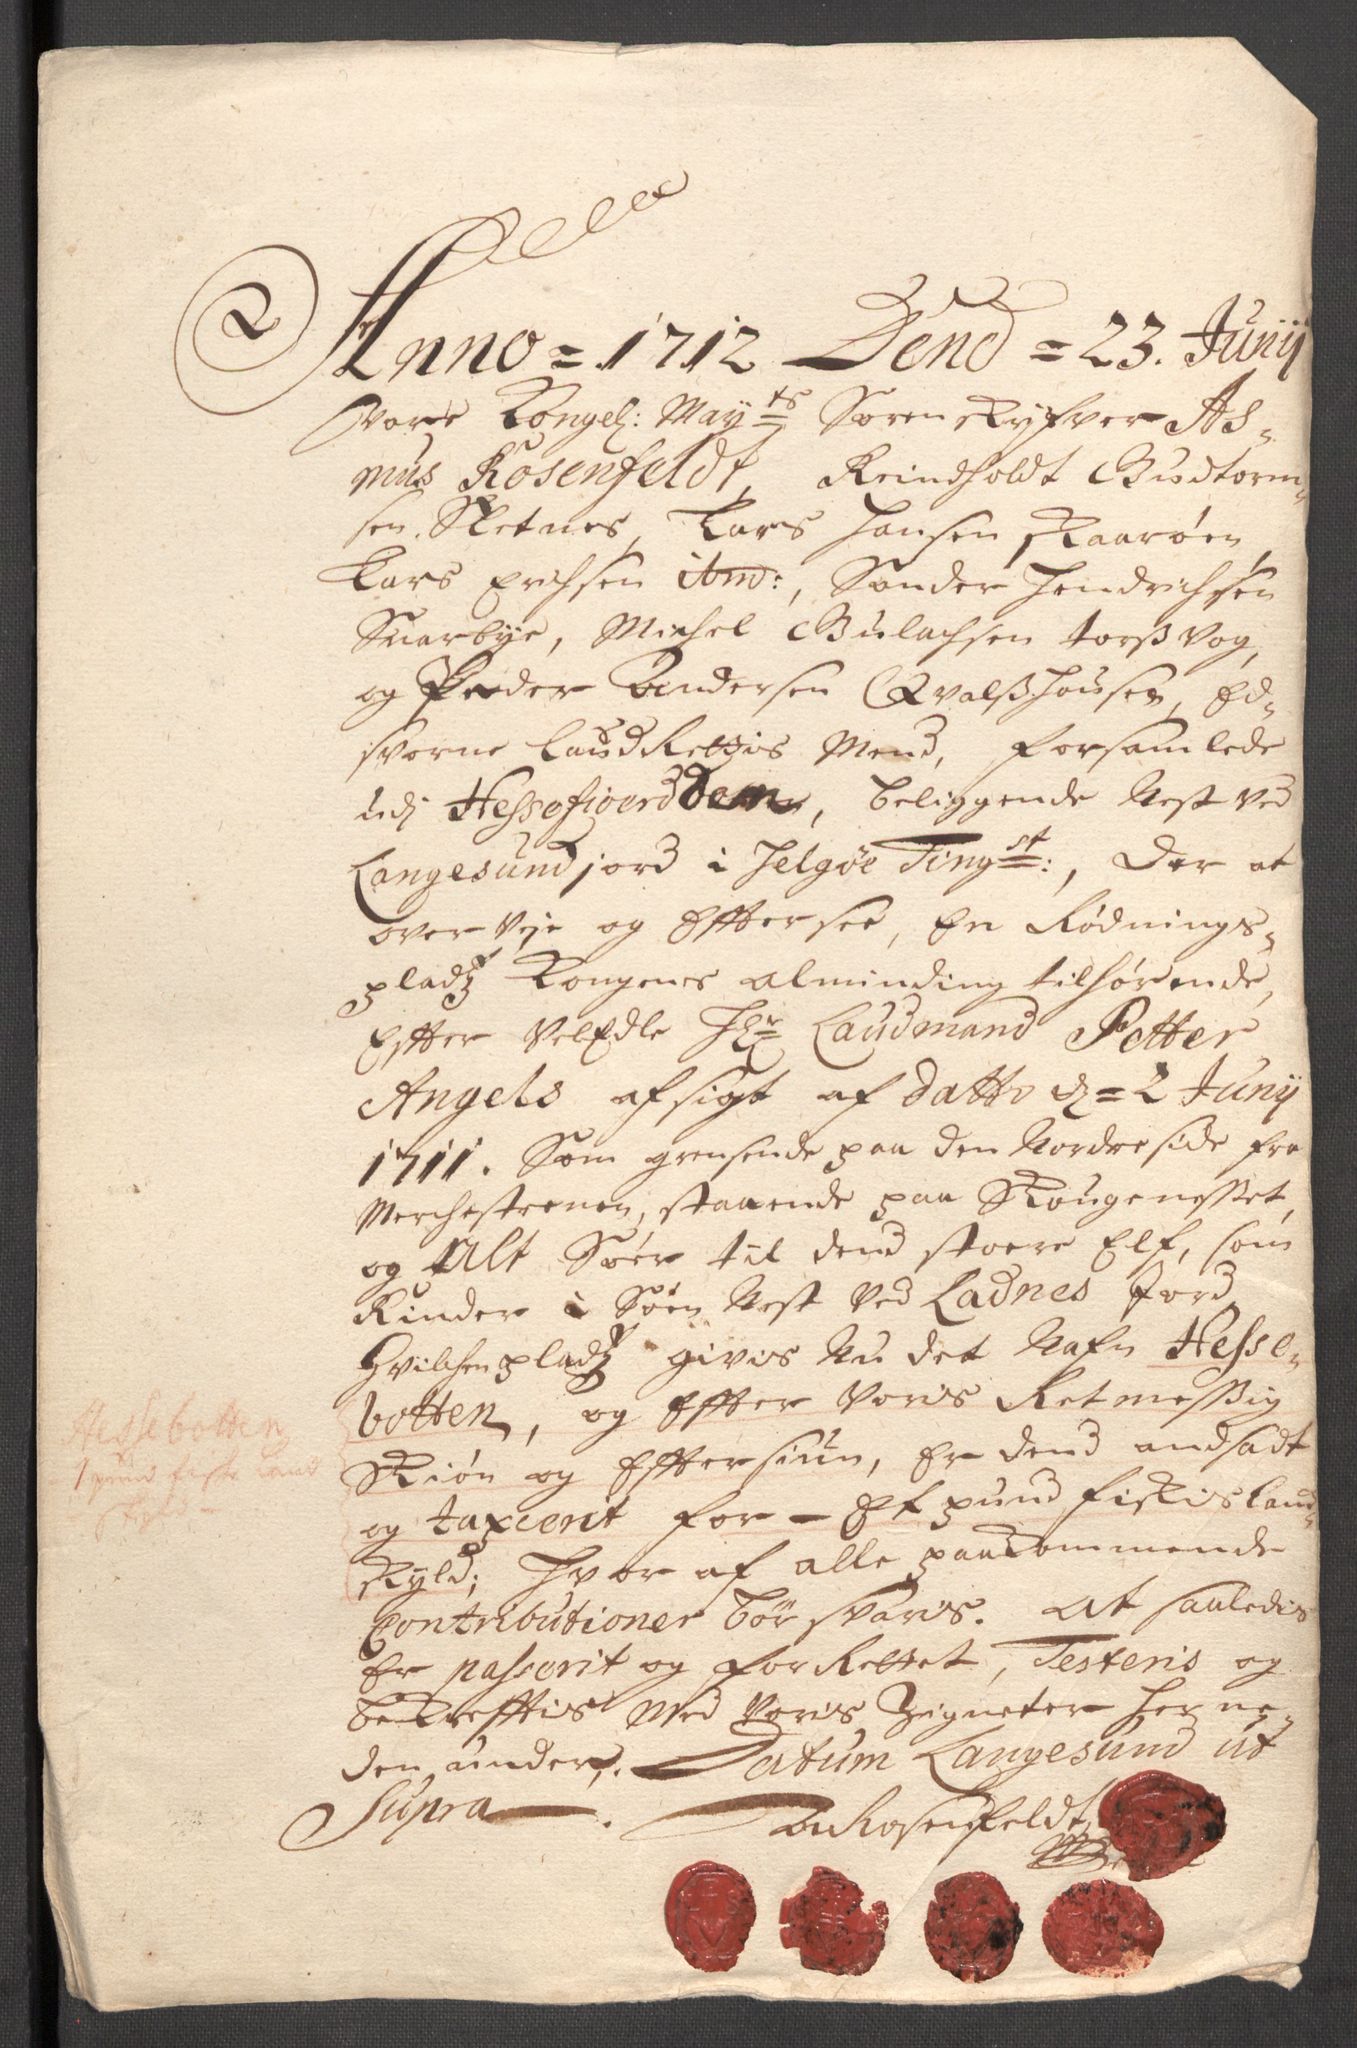 Anno = 1712 Dend = 23. Junij
Vare Kongel: May=ts Sorenskryfver As-
mus Rosenfeldt, Reindholdt Gudtorm-
sen. Sletnes, Lars Hansen Skaarøen
Lars Erichsen itm:, Sonder Hendrichsen
Snarbye, Michel Gulachsen Torsvog,
og Peder Andersen Qvalshousen, Ed-
svorne LaudRettis Mend, forsamlede
udj Hessefiordbotten, beliggende Nest ved
Langesund jord i Helgøe Ting=st:, Der at
over Veje og Efftersee, En Rødnings-
pladtz Kongens Alminding tilhørende,
Effter VelEdle Hr Laudmand Petter
Angels afsigt af datto d = 2 Junij
1711. Som grensende paa den Nordre side fra
Merchestenen, staaende paa Skougenesset,
og Alt Søer til dend stoere Elf, som
Rinder i Søen Nest Ved Ladnes Jord
Hvilchen pladtz gives Nu det Nafn Hesse-
botten, og Effter Voris Retmessig
Skiøn og Efftersiun, Er dend andsadt
og taxcerit for – Et pund fiskis Land-
skyld; Hvor af alle paakommende
Contributioner bør svaris. At saaledis
Er passerit og forRettet, Testeris og
beKrefftis Med Voris Zigneter her ne-
den under,. Datum Langesund ut
Supra .
Rosenfeldt
Hessebotten
1 pund fiske Land
skyld –